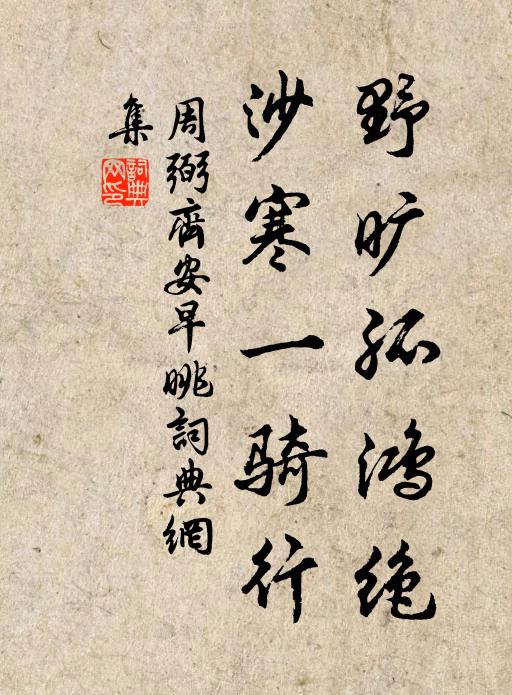 野旷孤鸿绝
沙寒一骑行
周弼齊安早眺詞典網
集
詞典
网印